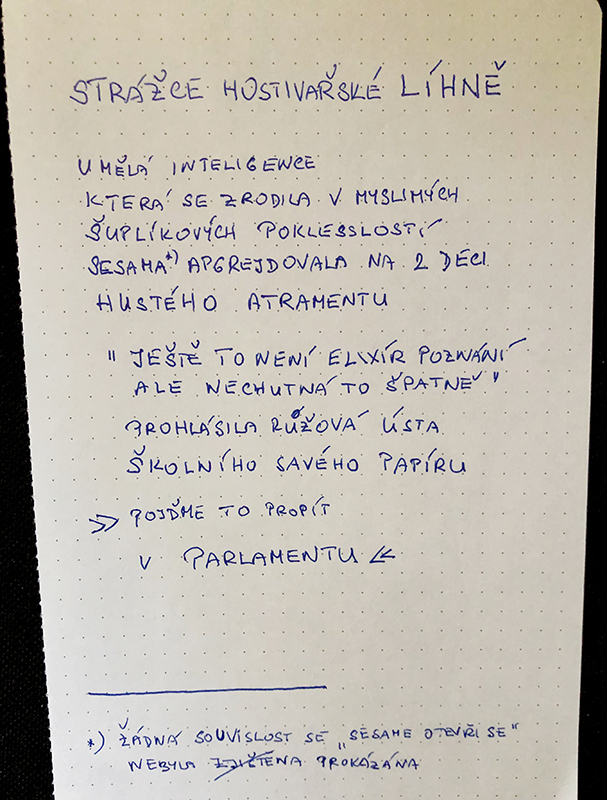 STRÁŽCE HOSTIVAŘSKÉ LÍHNĚ
UMĚLÁ INTELIGENCE
KTERÁ SE ZRODILA V MYSLIMÝCH
ŠUPLÍKOVÝCH POKLESSLOSTÍ
SESAMA*) APGREJDOVALA NA 2 DECI
HUSTÉHO ATRAMENTU
" JEŠTĚ TO NENÍ ELIXÍR POZNÁNÍ
ALE NECHUTNÁ TO ŠPATNĚ "
PROHLÁSILA RŮŽOVÁ ÚSTA
ŠKOLNÍHO SAVÉHO PAPÍRU
>> POJĎME TO PROPÍT
V PARLAMENTU <<
*) ŽÁDNÁ SOUVISLOST SE „SESAME OTEVŘI SE"
NEBYLA ZJIŠTĚNA PROKÁZÁNA